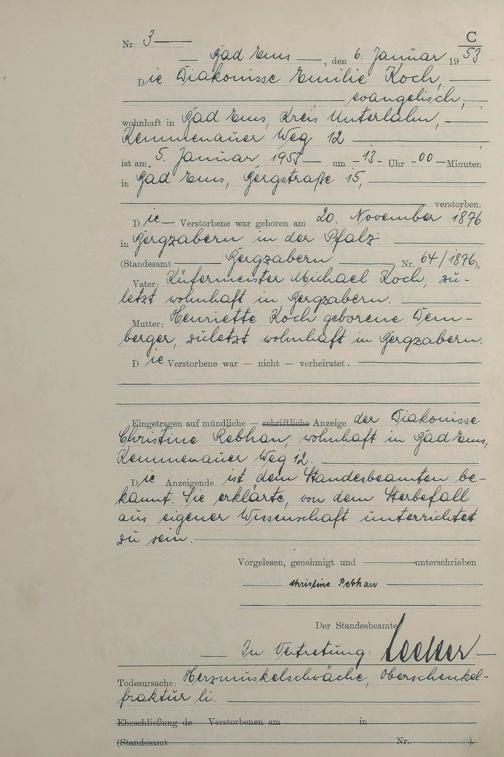 C
Nr. 3
Bad Ems, den 6. Januar 1953
Die Diakonisse Emilie Koch,
evangelisch,
wohnhaft in Bad Ems, Kreis Unterlahn,
Kemmenauer Weg 12
ist am 5. Januar 1953 um 13 Uhr 00 Minuten
in Bad Ems, Bergstraße 15,
verstorben.
Die Verstorbene war geboren am 20. November 1876
in Bergzabern in der Pfalz.
(Standesamt Bergzabern Nr. 64/1876),
Vater: Küfermeister Michael Koch, zu-
letzt wohnhaft in Bergzabern.
Mutter: Henriette Koch geborene Dem-
berger, zuletzt wohnhaft in Bergzabern.
Die Verstorbene war — nicht — verheiratet.
Eingetragen auf mündliche — schriftliche Anzeige der Diakonisse
Christine Rebhan, wohnhaft in Bad Ems,
Kemmenauer Weg 12.
Die Anzeigende ist dem Standesbeamten be-
kannt. Sie erklärte, von dem Sterbefall
aus eigener Wissenschaft unterrichtet
zu sein.
Vorgelesen, genehmigt und unterschrieben
Christine Rebhan
Der Standesbeamte
In Vertretung:
Todesursache: Herzmuskelschwäche, Oberschenkel-
fraktur li.
Eheschließung de Verstorbenen am in
(Standesamt Nr. ).